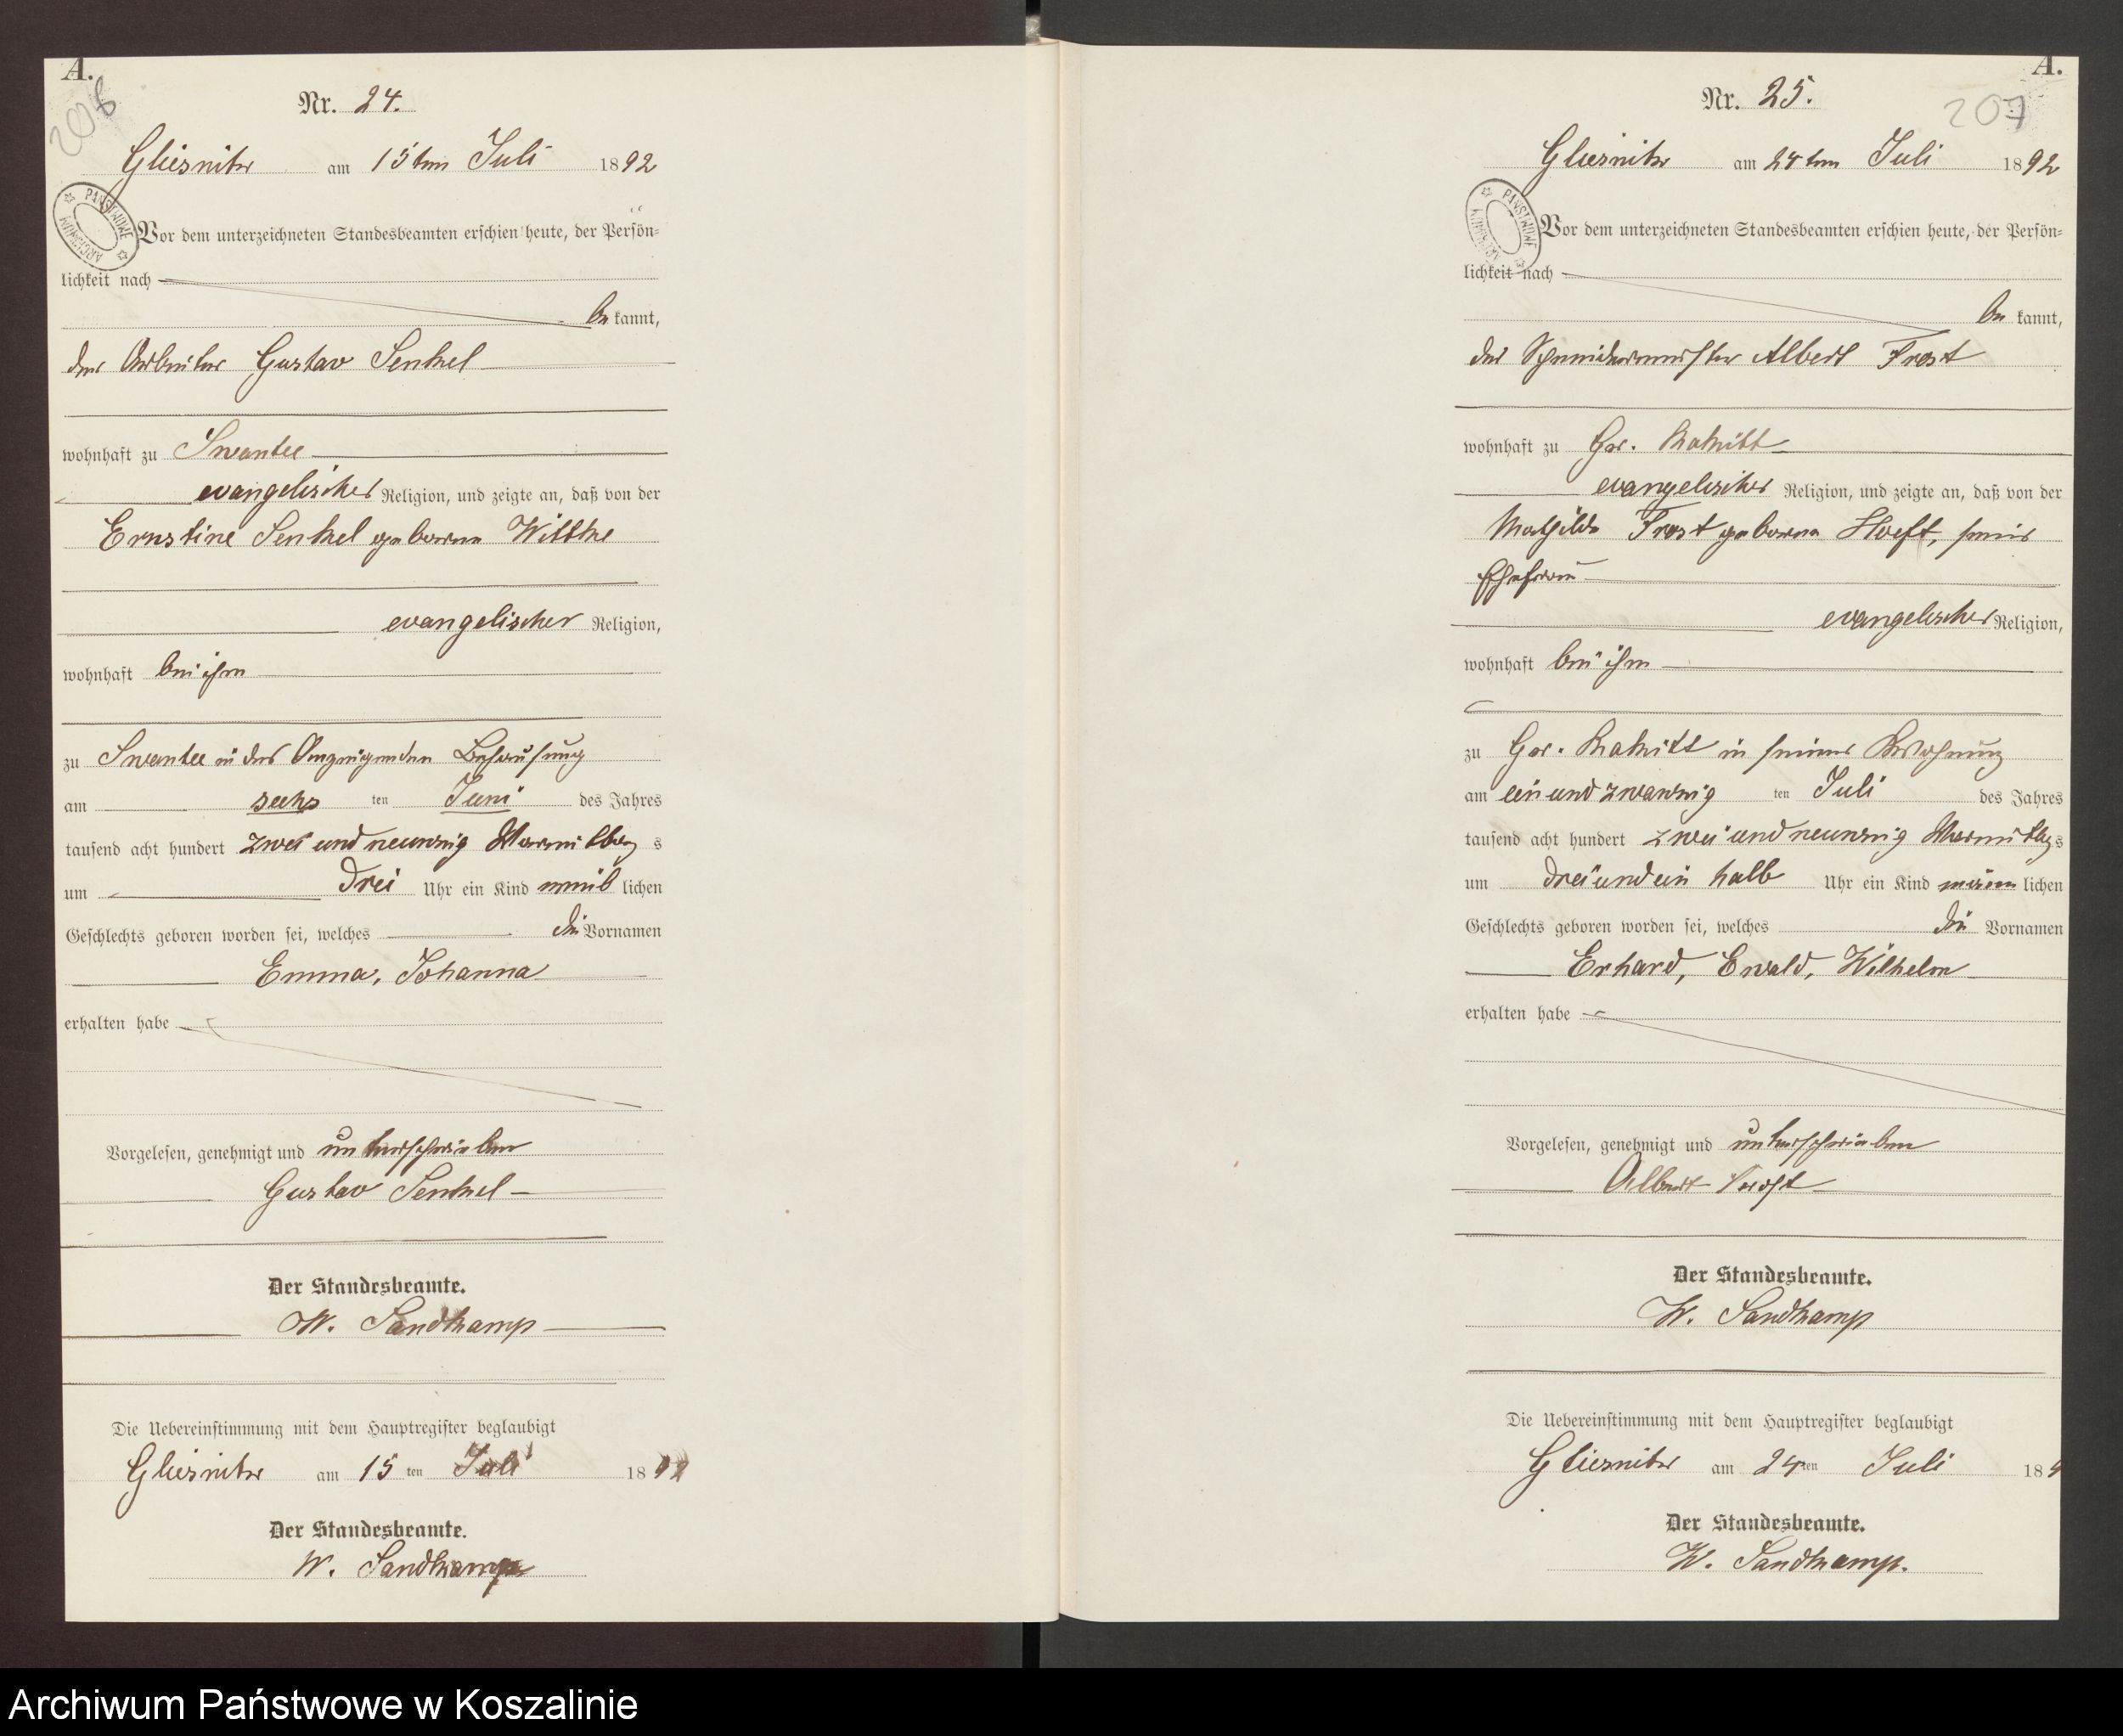 A.
206
Nr. 24.
Gliesnitz am 15ten Juli 1892
PAŃSTWOWE ARCHIWUM
Vor dem unterzeichneten Standesbeamten erschien heute, der Persön=
lichkeit nach
be kannt,
der Arbeiter Gustav Senkel
wohnhaft zu Swantee
evangelischer Religion, und zeigte an, daß von der
Ernstine Senkel geborene Witthe
evangelischer Religion,
wohnhaft bei ihm
zu Swantee in des Anzeigenden Behausung
am sechs ten Juni des Jahres
tausend acht hundert zwei und neunzig Vormittag s
um drei Uhr ein Kind weib lichen
Geschlechts geboren worden sei, welches die Vornamen
Emma, Johanna
erhalten habe
Vorgelesen, genehmigt und unterschrieben
Gustav Senkel
Der Standesbeamte.
W. Sandkamp
Die Uebereinstimmung mit dem Hauptregister beglaubigt
Gliesnitz am 15 ten Juli 1892
Der Standesbeamte.
W. Sandkamp
A.
207
Nr. 25.
Gliesnitz am 24ten Juli 1892
PAŃSTWOWE ARCHIWUM
Vor dem unterzeichneten Standesbeamten erschien heute, der Persön=
lichkeit nach
be kannt,
der Schneidermeister Albert Frost
wohnhaft zu Gr. Rakitt
evangelischer Religion, und zeigte an, daß von der
Mathilde Frost geborene Hoeft, seiner
Ehefrau
evangelischer Religion,
wohnhaft bei ihm
zu Gr. Rakitt in seiner Wohnung
am ein und zwanzig ten Juli des Jahres
tausend acht hundert zwei und neunzig Vormittags
um drei und ein halb Uhr ein Kind männ lichen
Geschlechts geboren worden sei, welches die Vornamen
Erhard, Ewald, Wilhelm
erhalten habe
Vorgelesen, genehmigt und unterschrieben
Albert Frost
Der Standesbeamte.
W. Sandkamp
Die Uebereinstimmung mit dem Hauptregister beglaubigt
Gliesnitz am 24ten Juli 189
Der Standesbeamte.
W. Sandkamp.
Archiwum Państwowe w Koszalinie